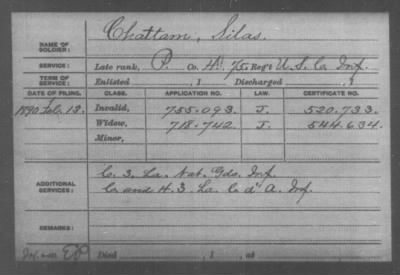 NAME OF SOLDIER: Chattam, Silas.
SERVICE: Late rank, P. Co. H, 75 Reg't U.S.C. Inf.
TERM OF SERVICE: Enlisted , 1 Discharged , 1
DATE OF FILING. CLASS. APPLICATION NO. LAW. CERTIFICATE NO.
1890 Feb. 13. Invalid, 755.093. J. 520.733.
Widow, 718.742. J. 544.634.
Minor,
ADDITIONAL SERVICES: C. 3. La. Nat. Gds. Inf.
C. and H. 3. La. C. d'A. Inf.
REMARKS:
Died , 1 , at